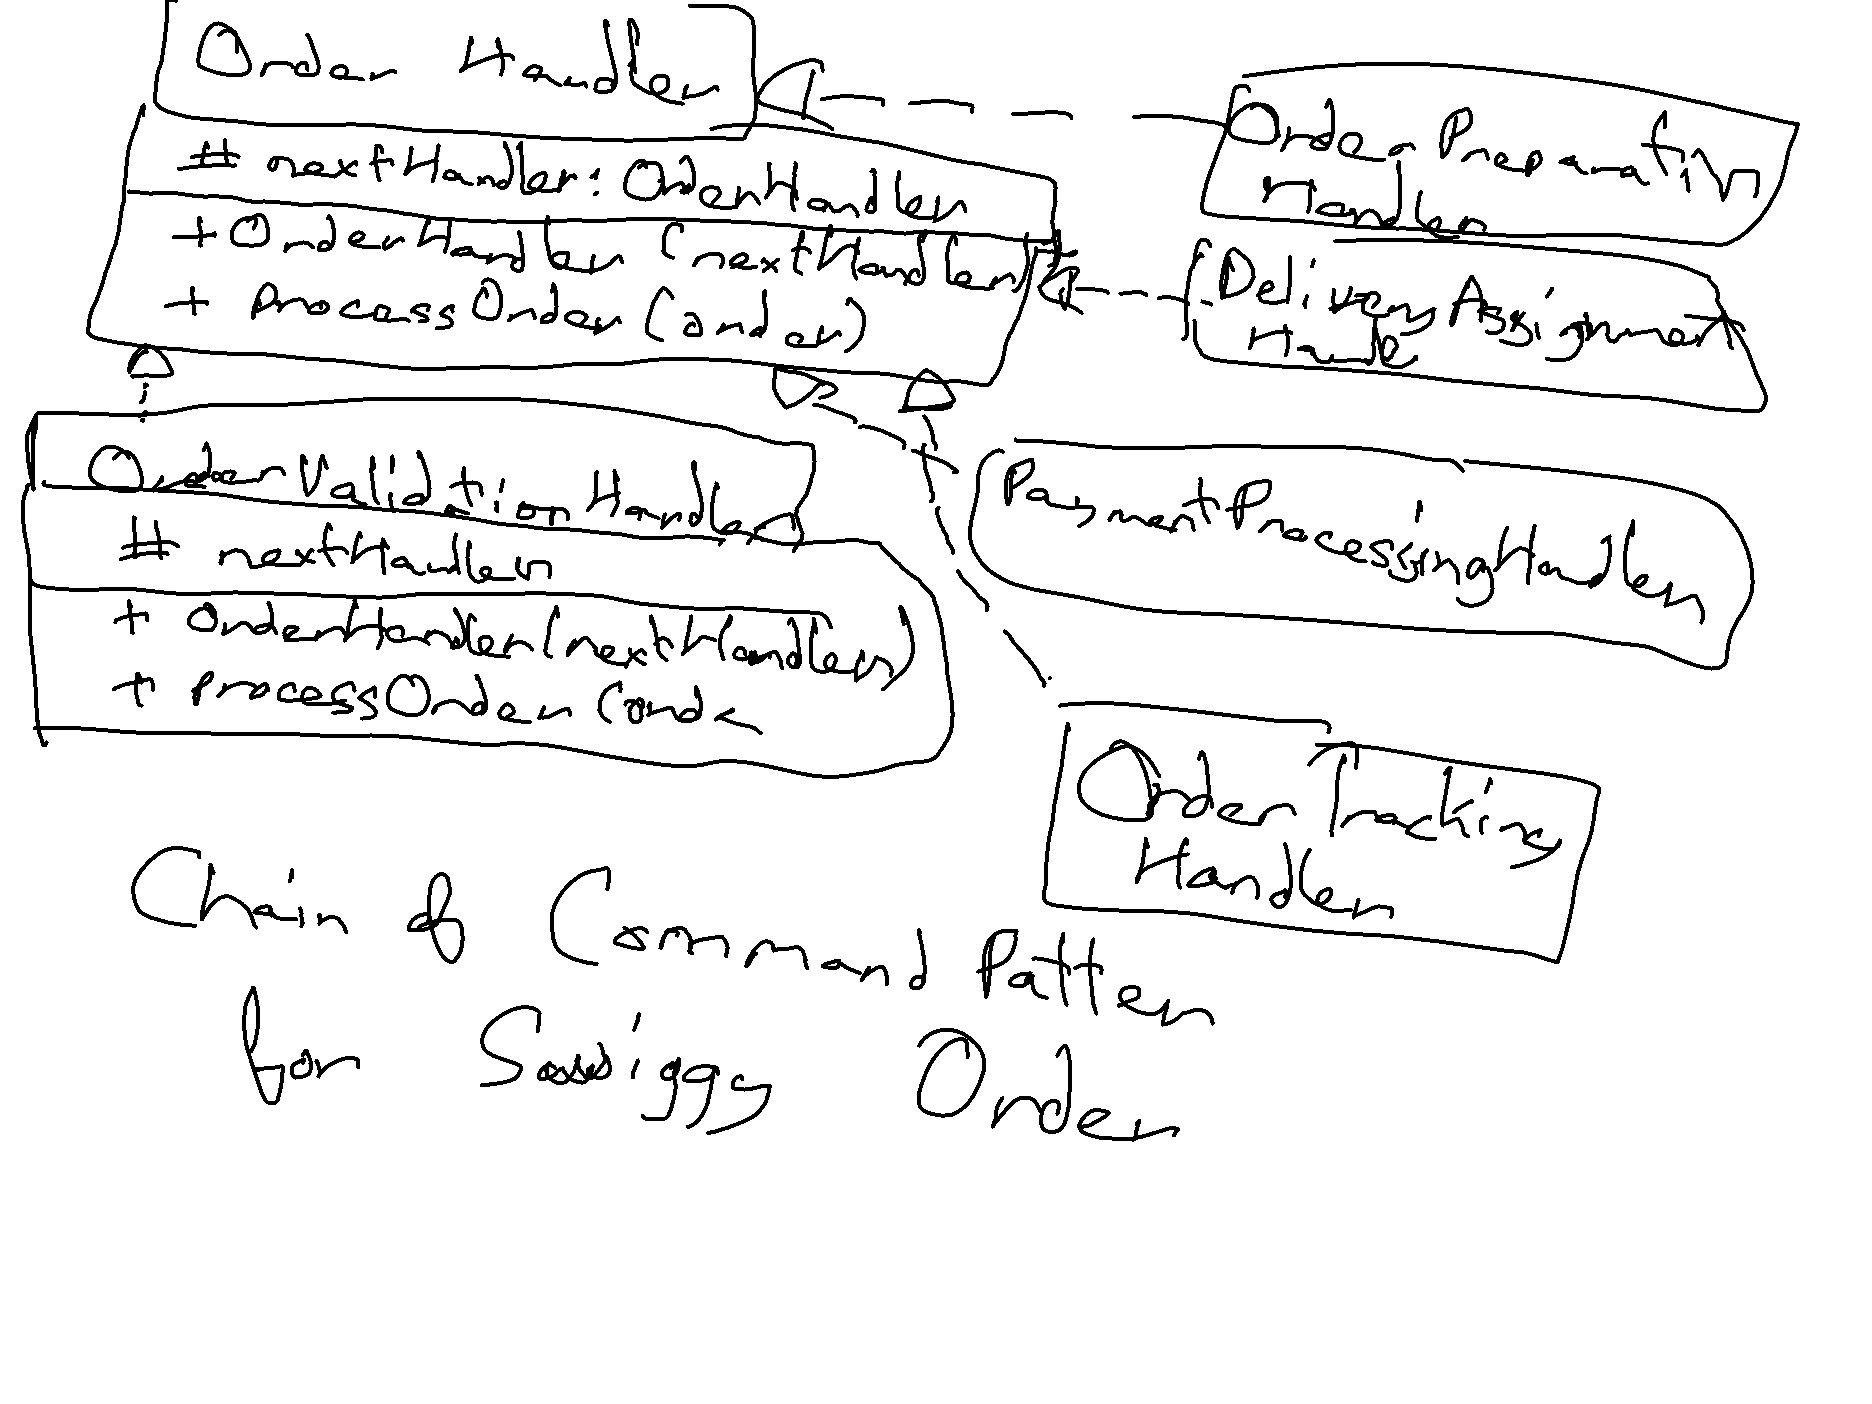 Order Handler
# nextHandler: OrderHandler
+ OrderHandler (nextHandler)
+ processOrder (order)
Order Preparation
Handler
Delivery Assignment
Handle
OrderValidationHandler
# nextHandler
+ OrderHandler(nextHandler)
+ processOrder (orde
PaymentProcessingHandler
Order Tracking
Handler
Chain of Command Pattern
for Swiggy Order